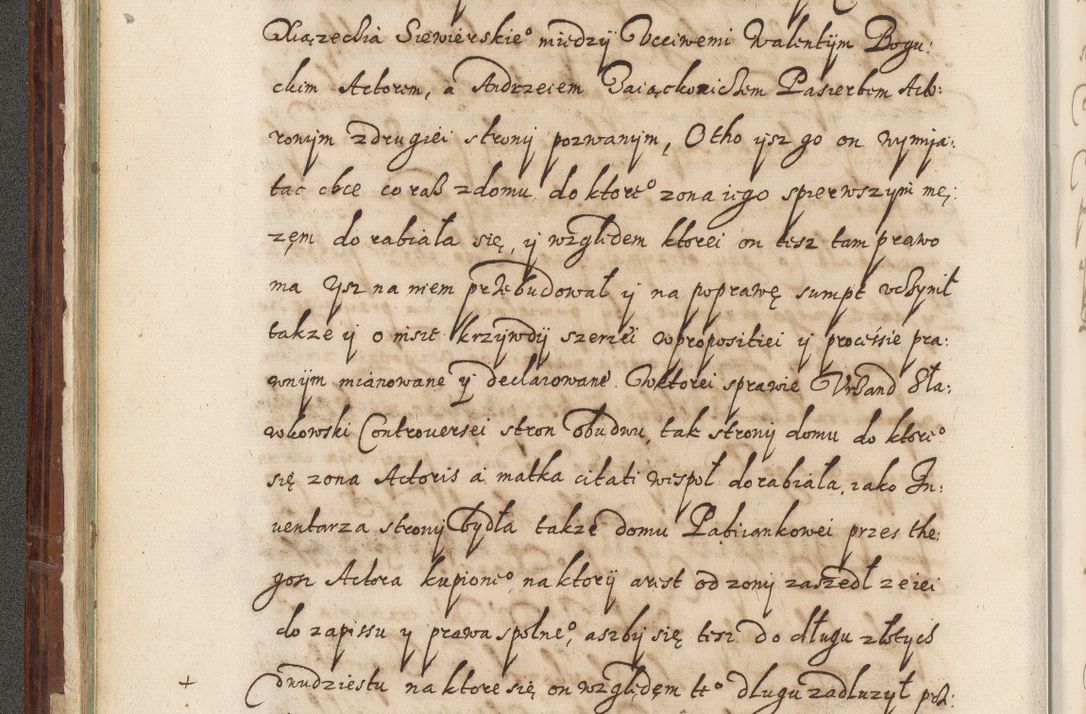 Xiązechia Siewierskie° między Ucciwemi Walentym Bogu:
ckim Actorem, a Andrzeiem Zaiąckowichem Pasierbem Acto:
ronym z drugiei strony pozwanym, Otho ysz go on wymia:
tac chce co raß z domu, do ktore° zona iego spierwszym mę:
zęm dorabiała się, y względem ktorei on tesz tam prawo
ma ysz na niem przebudował y na poprawę sumpt uchynił
takze y o insze krzywdy szerzei w propositiei y processie pra:
wnym mianowane y declarowane. W ktorei sprawie Urzand Sła:
wkowski Controversei stron obudwu, tak strony domu do ktore°
się zona Actoris a matka citati wespoł dorabiała, iako In:
uentarza strony bydła takze domu Pabiankowei przes the:
gosz Actora kupione°, na ktory arest od zony zaszedł ze iei
do zapissu y prawa spolne°, aszby się tesz do długu złotych
dwudziestu na ktore się on względem te° długu zadluzył prz: